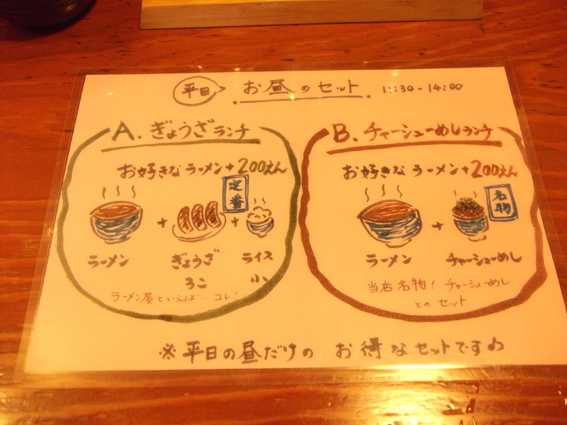 平日 お昼のセット 11:30-14:00
A. ぎょうざランチ
お好きなラーメン+200えん
定番
ラーメン + ぎょうざ + ライス
3こ 小
ラーメン屋といえば…コレ!
B. チャーシューめしランチ
お好きなラーメン+200えん
名物
ラーメン + チャーシューめし
当店名物! チャーシューめし
とのセット
※平日の昼だけの お得なセットです